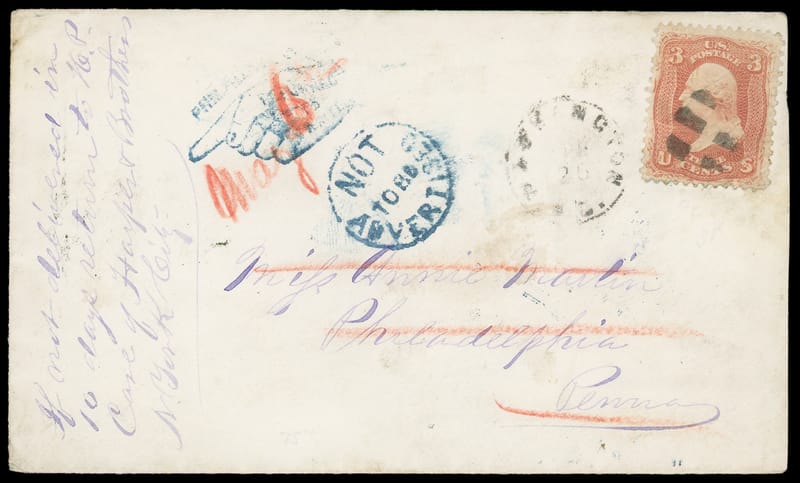 If not delivered in
10 days return to
Care of Harper & Brothers
N. York City
May 6
NOT
TO BE
ADVERTISED
20
3 U.S. 3
POSTAGE
U THREE S
CENTS
Miss Annie Martin
Philadelphia
Penna